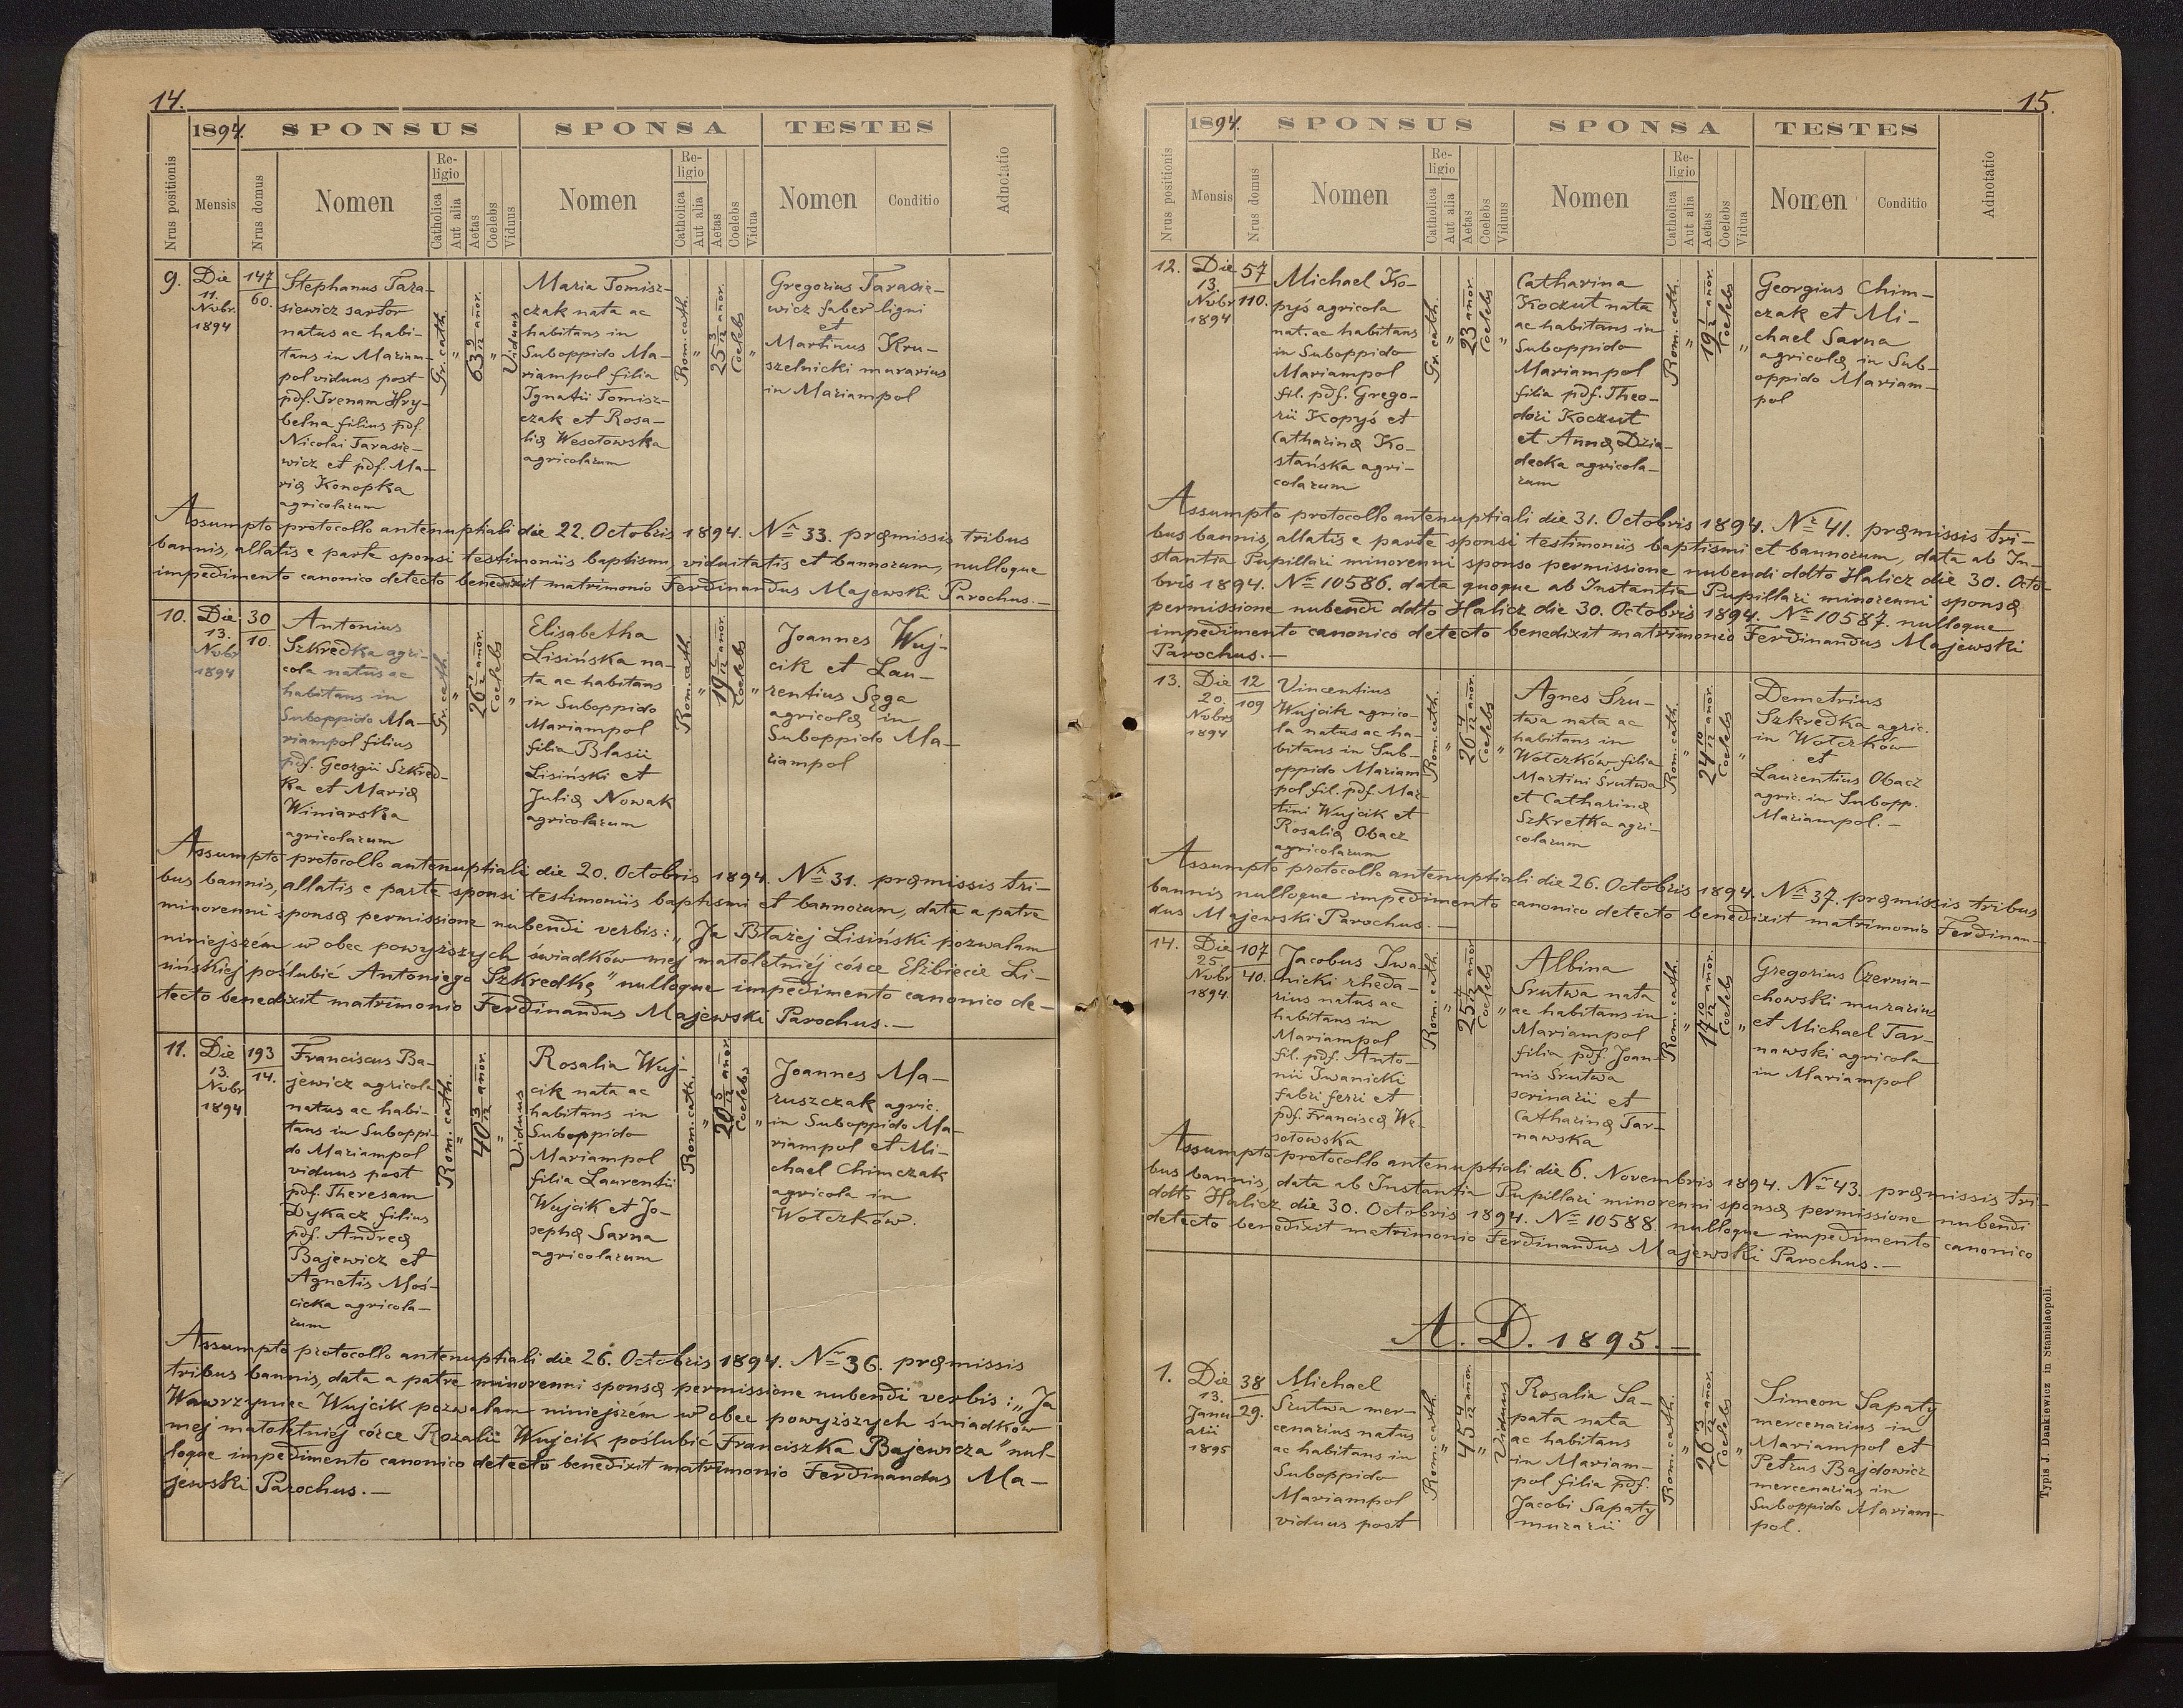 14.
1894.
SPONSUS
SPONSA
TESTES
Nrus positionis
Mensis
Nrus domus
Nomen
Religio
Catholica
Aut alia
Aetas
Coelebs
Viduus
Nomen
Religio
Catholica
Aut alia
Aetas
Coelebs
Vidua
Nomen
Conditio
Adnotatio
9.
Die
11.
Novbr.
1894
147
60.
Stephanus Tara-
siewicz sartor
natus ac habi-
tans in Mariam-
pol viduus post
pdf. Irenam Hry-
belna filius pdf.
Nicolai Tarasie-
wicz et pdf. Ma-
riæ Konopka
agricolarum
Gr. cath.
"
63 9/12 anor.
"
Viduus
Maria Tomisz-
czak nata ac
habitans in
Suboppido Ma-
riampol filia
Ignatii Tomisz-
czak et Rosa-
liæ Wesołowska
agricolarum
Rom. cath.
"
25 3/12 anor.
Coelebs
"
Gregorius Tarasie-
wicz faber ligni
et
Martinus Kru-
szelnicki murarius
in Mariampol
Assumpto protocollo antenuptiali die 22. Octobris 1894. Nr 33. præmissis tribus
bannis, allatis e parte sponsi testimoniis baptismi, viduitatis et bannorum, nulloque
impedimento canonico detecto benedixit matrimonio Ferdinandus Majewski Parochus.—
10.
Die
13.
Novbr
1894
30
10.
Antonius
Szkredka agri-
cola natus ac
habitans in
Suboppido Ma-
riampol filius
pdf. Georgii Szkred-
ka et Mariæ
Winiarska
agricolarum
Gr. cath.
"
Coelebs
"
Elisabetha
Lisińska na-
ta ac habitans
in Suboppido
Mariampol
filia Blasii
Lisiński et
Juliæ Nowak
agricolarum
Rom. cath.
"
Coelebs
"
Joannes Wuj-
cik et Lau-
rentius Sęga
agricolæ in
Suboppido Ma-
riampol
Assumpto protocollo antenuptiali die 20. Octobris 1894. Nr 31. præmissis tri-
bus bannis, allatis e parte sponsi testimoniis baptismi et bannorum, data a patre
minorenni sponsæ permissione nubendi verbis: „Ja Błażej Lisiński pozwalam
niniejszém w obec powyższych świadków mej małoletniéj córce Elżbiecie Li-
sińskiéj poślubić Antoniego Szkredkę" nulloque impedimento canonico de-
tecto benedixit matrimonio Ferdinandus Majewski Parochus.—
11.
Die
13.
Novbr
1894
193
14.
Franciscus Ba-
jewicz agricola
natus ac habi-
tans in Suboppi-
do Mariampol
viduus post
pdf. Theresam
Dykacz filius
pdf. Andreæ
Bajewicz et
Agnetis Moś-
cicka agricola-
rum
Rom. cath.
"
40 3/12 anor.
"
Viduus
Rosalia Wuj-
cik nata ac
habitans in
Suboppido
Mariampol
filia Laurentii
Wujcik et Jo-
sephæ Sarna
agricolarum
Rom. cath.
"
20 5/12 anor.
Coelebs
"
Joannes Ma-
ruszczak agric.
in Suboppido Ma-
riampol et Mi-
chael Chimczak
agricola in
Wołczków.
Assumpto protocollo antenuptiali die 26. Octobris 1894. Nr 36. præmissis
tribus bannis, data a patre minorenni sponsæ permissione nubendi verbis: „Ja
Wawrzyniec Wujcik pozwalam niniejszém w obec powyższych świadków
mej małoletniéj córce Rozalii Wujcik poślubić Franciszka Bajewicza" nul-
loque impedimento canonico detecto benedixit matrimonio Ferdinandus Ma-
jewski Parochus.—
15.
1894.
SPONSUS
SPONSA
TESTES
Nrus positionis
Mensis
Nrus domus
Nomen
Religio
Catholica
Aut alia
Aetas
Coelebs
Viduus
Nomen
Religio
Catholica
Aut alia
Aetas
Coelebs
Vidua
Nomen
Conditio
Adnotatio
12.
Die
13.
Novbr
1894
57
110.
Michael Ko-
pyś agricola
nat. ac habitans
in Suboppido
Mariampol
fil. pdf. Grego-
rii Kopyś et
Catharinæ Ko-
stańska agri-
colarum
Gr. cath.
"
23 anor.
Coelebs
"
Catharina
Koczut nata
ac habitans in
Suboppido
Mariampol
filia pdf. Theo-
dori Koczut
et Annæ Dzia-
decka agricola-
rum
Rom. cath.
"
Coelebs
"
Georgius Chim-
czak et Mi-
chael Sarna
agricolæ in Sub-
oppido Mariam-
pol
Assumpto protocollo antenuptiali die 31. Octobris 1894. Nr 41. præmissis tri-
bus bannis, allatis e parte sponsi testimoniis baptismi et bannorum, data ab In-
stantia Pupillari minorenni sponso permissione nubendi ddto Halicz die 30. Octo-
bris 1894. Nr 10586. data quoque ab Instantia Pupillari minorenni sponsæ
permissione nubendi ddto Halicz die 30. Octobris 1894. Nr 10587. nulloque
impedimento canonico detecto benedixit matrimonio Ferdinandus Majewski
Parochus.—
13.
Die
20.
Novbris
1894
12
109
Vincentius
Wujcik agrico-
la natus ac ha-
bitans in Sub-
oppido Mariam
pol fil. pdf. Mar-
tini Wujcik et
Rosaliæ Obacz
agricolarum
Rom. cath.
"
26 4/12 anor.
Coelebs
"
Agnes Sru-
twa nata ac
habitans in
Wołczków filia
Martini Śrutwa
et Catharinæ
Szkretka agri-
colarum
Rom. cath.
"
24 10/12 anor.
Coelebs
"
Demetrius
Szkredka agric.
in Wołczków
et
Laurentius Obacz
agric. in Subopp.
Mariampol.—
Assumpto protocollo antenuptiali die 26. Octobris 1894. Nr 37. præmissis tribus
bannis nulloque impedimento canonico detecto benedixit matrimonio Ferdinan-
dus Majewski Parochus.—
14.
Die
25.
Novbr
1894.
107
40.
Jacobus Iwa-
nicki rheda-
rius natus ac
habitans in
Mariampol
fil. pdf. Anto-
nii Iwanicki
fabri ferri et
pdf. Franciscæ We-
sołowska
Rom. cath.
"
25 4/12 anor
Coelebs
"
Albina
Srutwa nata
ac habitans in
Mariampol
filia pdf. Joan-
nis Srutwa
scrinarii et
Catharinæ Tar-
nawska
Rom. cath.
"
17 10/12 anor.
Coelebs
"
Gregorius Czernia-
chowski murarius
et Michael Tar-
nawski agricola
in Mariampol
Assumpto protocollo antenuptiali die 6. Novembris 1894. Nr 43. præmissis tri-
bus bannis, data ab Instantia Pupillari minorenni sponsæ permissione nubendi
ddto Halicz die 30. Octobris 1894. Nr 10588. nulloque impedimento canonico
detecto benedixit matrimonio Ferdinandus Majewski Parochus.—
A. D. 1895.—
1.
Die
13.
Janu-
arii
1895
38
29.
Michael
Śrutwa mer-
cenarius natus
ac habitans in
Suboppido
Mariampol
viduus post
Rom. cath.
"
45 4/12 anor.
"
Viduus
Rosalia Sa-
pata nata
ac habitans
in Mariam-
pol filia pdf.
Jacobi Sapaty
murarii
Rom. cath.
"
26 3/12 anor.
Coelebs
"
Simeon Sapaty
mercenarius in
Mariampol et
Petrus Bajdowicz
mercenarius in
Suboppido Mariam-
pol.
Typis J. Dankiewicz in Stanislaopoli.